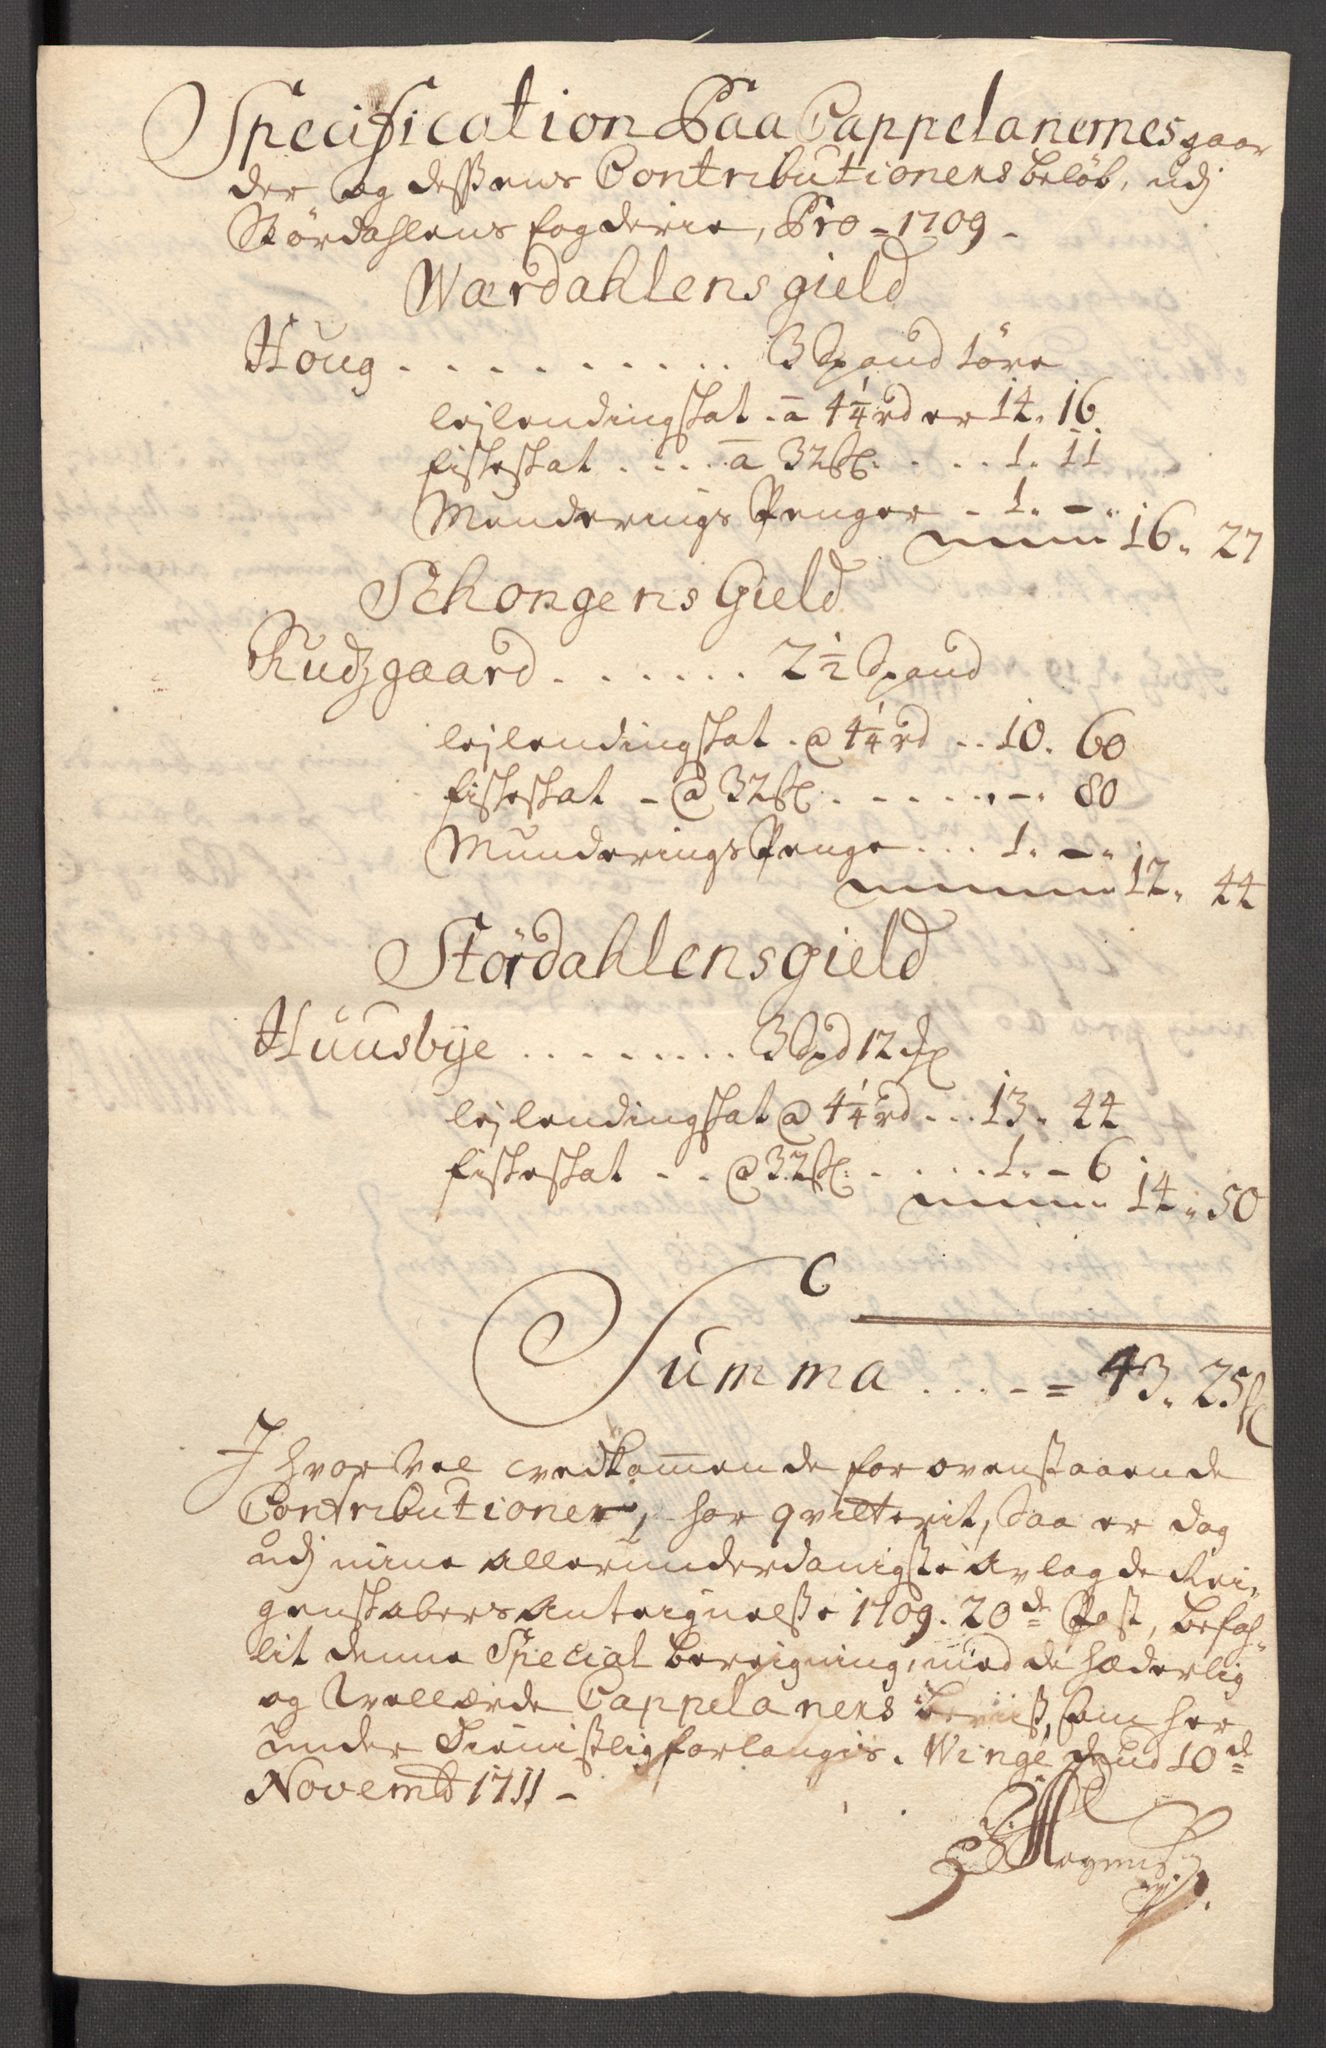 Specification Paa Cappelanernes gaar
der og dessens Contributioners beløb, udj
Størdahlens fogderie, Pro - 1709 -
Wærdahlens gield
Houg . . . . . . . . . . 3 Spand 1 øre
leilendingskat . a 4 1/4 rd er 14. 16
fiskeskat . . . . a 32 sk. . . . 1. 11
Munderings Penger - 1. -
16. 27
Schongens Gield
Rudzgaard . . . . . . . 2 1/2 Spand
lejlendingskat . @ 4 1/4 rd . . 10. 60
fiskeskat - @ 32 sk. . . . . . - . 80
Munderings Penge . . . 1. -
12. 44
Størdahlens gield
Huusbye . . . . . . . . . 3 Spd 12
lejlendingskat @ 4 1/4 rd . . . 13. 44
fiskeskat . . @ 32 sk. . . . . 1. - 6
14. 50
Summa . . . - = 43. 25 sk
Ihvorvel vedkommende for ovenstaaende
Contributioner, har qvitterit, saa er dog
udj mine allerunderdanigste aflagde Rei-
genskabers Anteignelsse 1709. 20de Post, befah-
lit denne Special bereigning, med de hæderlig
og Wellærde Cappelaners beviiss, som her
under tienistlig forlanges. Winge 10de
Novembr 1711 -